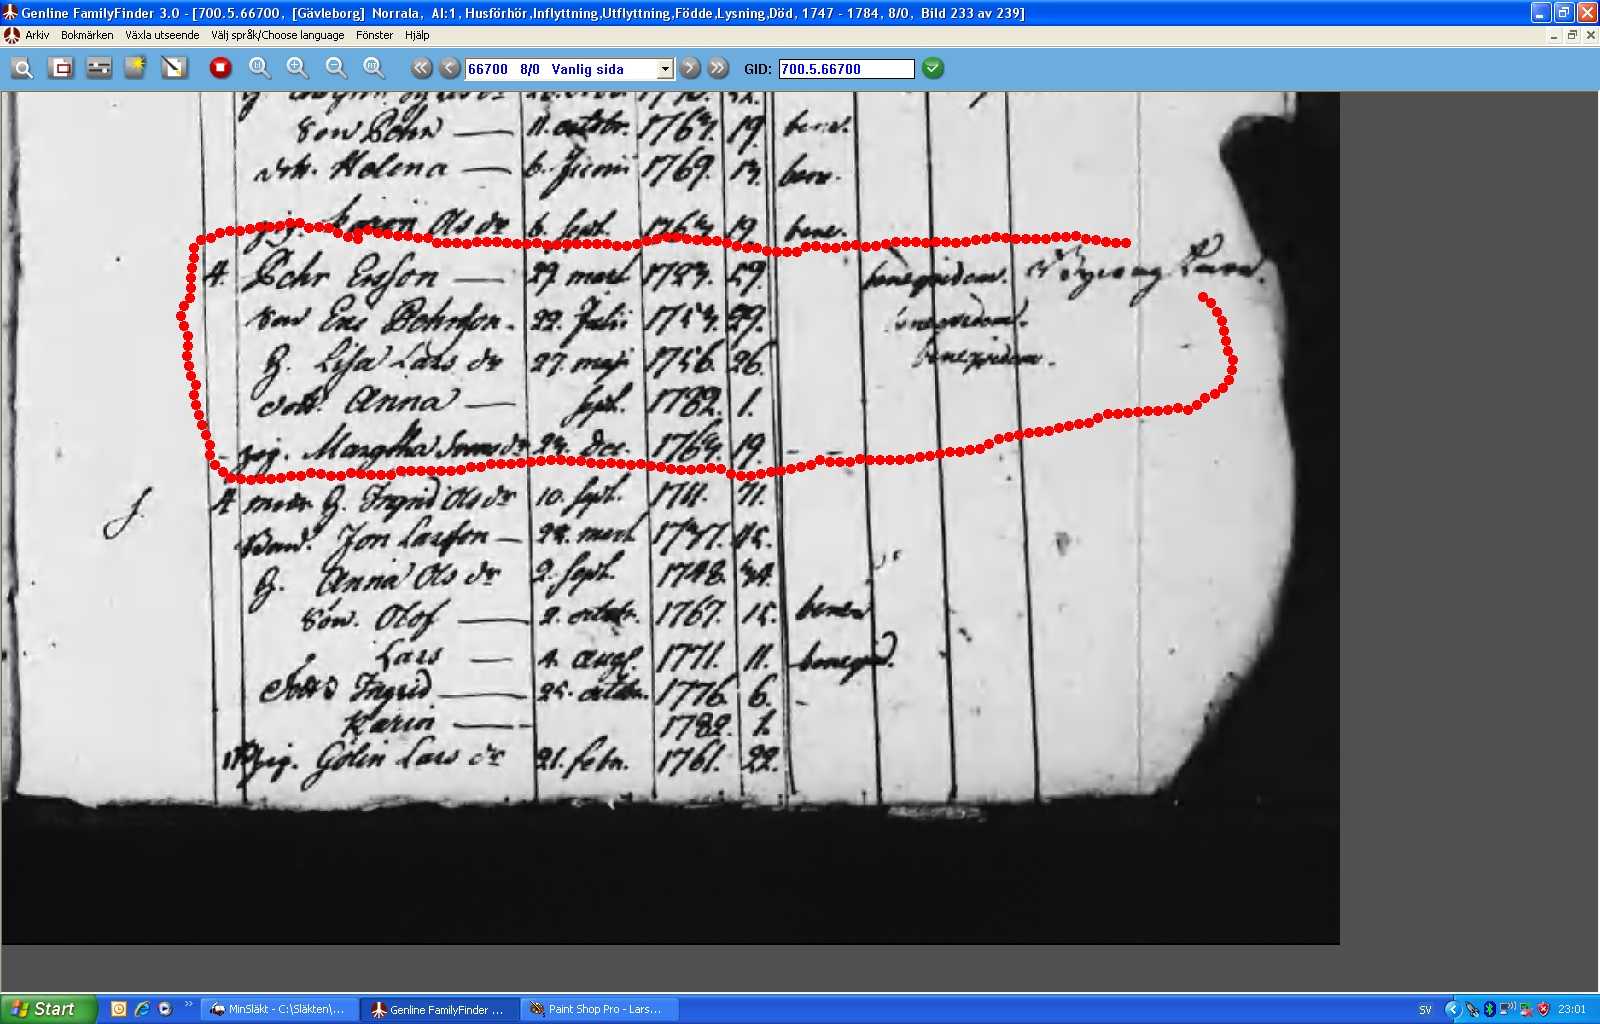 Genline FamilyFinder 3.0 - [700.5.66700, [Gävleborg] Norrala, AI:1, Husförhör,Inflyttning,Utflyttning,Födde,Lysning,Död, 1747 - 1784, 8/0, Bild 233 av 239]
Arkiv Bokmärken Växla utseende Välj språk/Choose language Fönster Hjälp
66700 8/0 Vanlig sida GID: 700.5.66700
Son Pehr 11. octobr. 1763. 19. bene.
dott. Helena 6. Junii 1769. 13. bene.
pig. Karin Ols dr 6. Sept. 1763. 19. bene.
A. Pehr Ersson 29. mart 1723. 59. benequidem.
Son Eric Pehrsson. 22. Julii 1753. 29.
H. Lisa Lars dr 27. maji 1756. 26.
dott. Anna Sept. 1782. 1.
pig. Margtha 24. dec. 1763. 19.
A H. Ingrid Ols dr 10. Sept. 1711. 71.
Jon Larsson mart 1737. 45.
H. Anna Ols dr 2. Sept. 1748. 34.
Son. Olof 2. octobr. 1767. 15. bene
Lars 4. aug. 1771. 11.
Ingrid 25. octobr. 1776. 6.
Karin 1782. 1.
pig. Gölin Lars dr 21. febr. 1761. 22.
Start MinSläkt - C:\Släkten\... Genline FamilyFinder ... Paint Shop Pro - Lars... SV 23:01